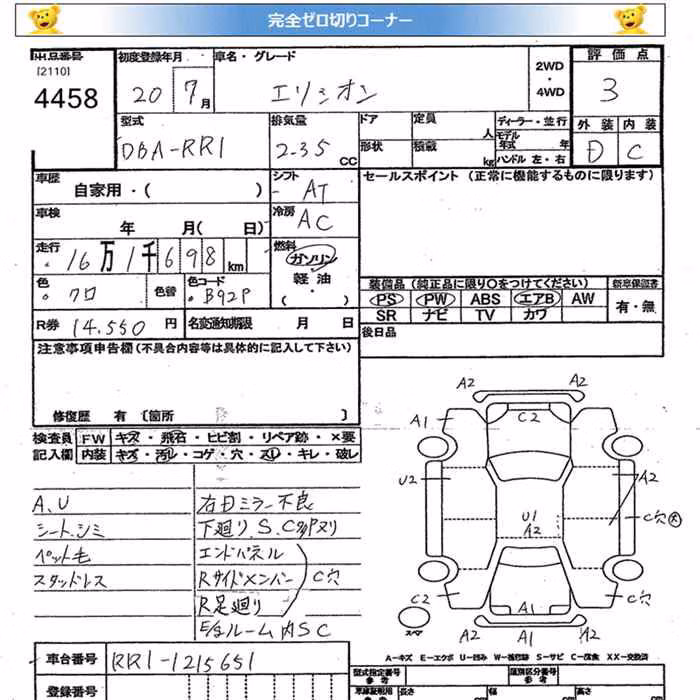 完全ゼロ切りコーナー
出品番号 初度登録年月 車名・グレード 2WD・4WD 評価点
[2110]
4458 20 7月 エリシオン 3
型式 排気量 ドア 定員 人 ディーラー・並行 外装 内装
DBA-RR1 2.35 CC 形状 積載 kg モデル年式 年 D C
ハンドル 左・右
車歴 自家用・( ) シフト AT セールスポイント (正常に機能するものに限ります)
車検 年 月( 日) 冷房 AC
走行 16万1千698km 燃料 ガソリン
軽油・( )
色 クロ 色替 色コード B92P 装備品 (純正品に限り○をつけてください) 新車保証書
PS PW ABS エアB AW 有・無
SR ナビ TV カワ
R券 14.550円 名変通知期限 月 日 後日品
注意事項申告欄 (不具合内容等は具体的に記入して下さい)
修復歴 有 〔箇所 〕
検査員記入欄 FW キズ・飛石・ヒビ割・リペア跡・×要
内装 キズ・汚レ・コゲ・穴・スレ・キレ・破レ
A.U 右Dミラー不良
シート.シミ 下廻り S.C多Pヌリ
ペット毛 エンドパネル
スタッドレス Rサイドメンバー C穴
R足廻り
E/gルーム内SC
A2 A2
A1 C2
U2 A2
U1
A2
C穴 大
C2 A1 C穴
A2 A2
スペア
A-キズ E-エクボ U-凹み W-補修跡 S-サビ C-腐食 XX-交換済
車台番号 RR1-1215651 型式指定番号 参考 類別区分番号 参考
登録番号 車線証取用 参考 長さ 幅 高さ